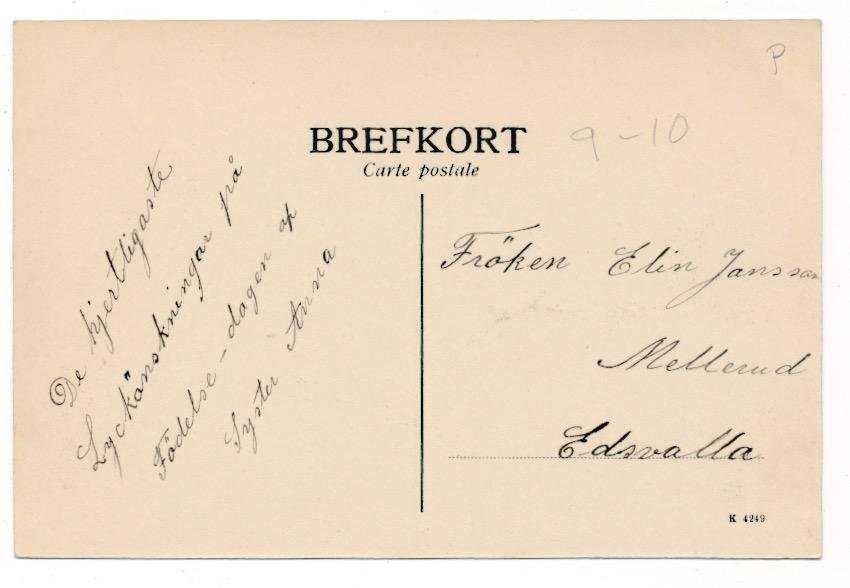 P
BREFKORT
9-10
Carte postale
De hjertligaste
Lyckönskningar på
Födelse-dagen af
Syster Anna
Fröken Elin Jansson
Mellerud
Edsvalla
K 4249